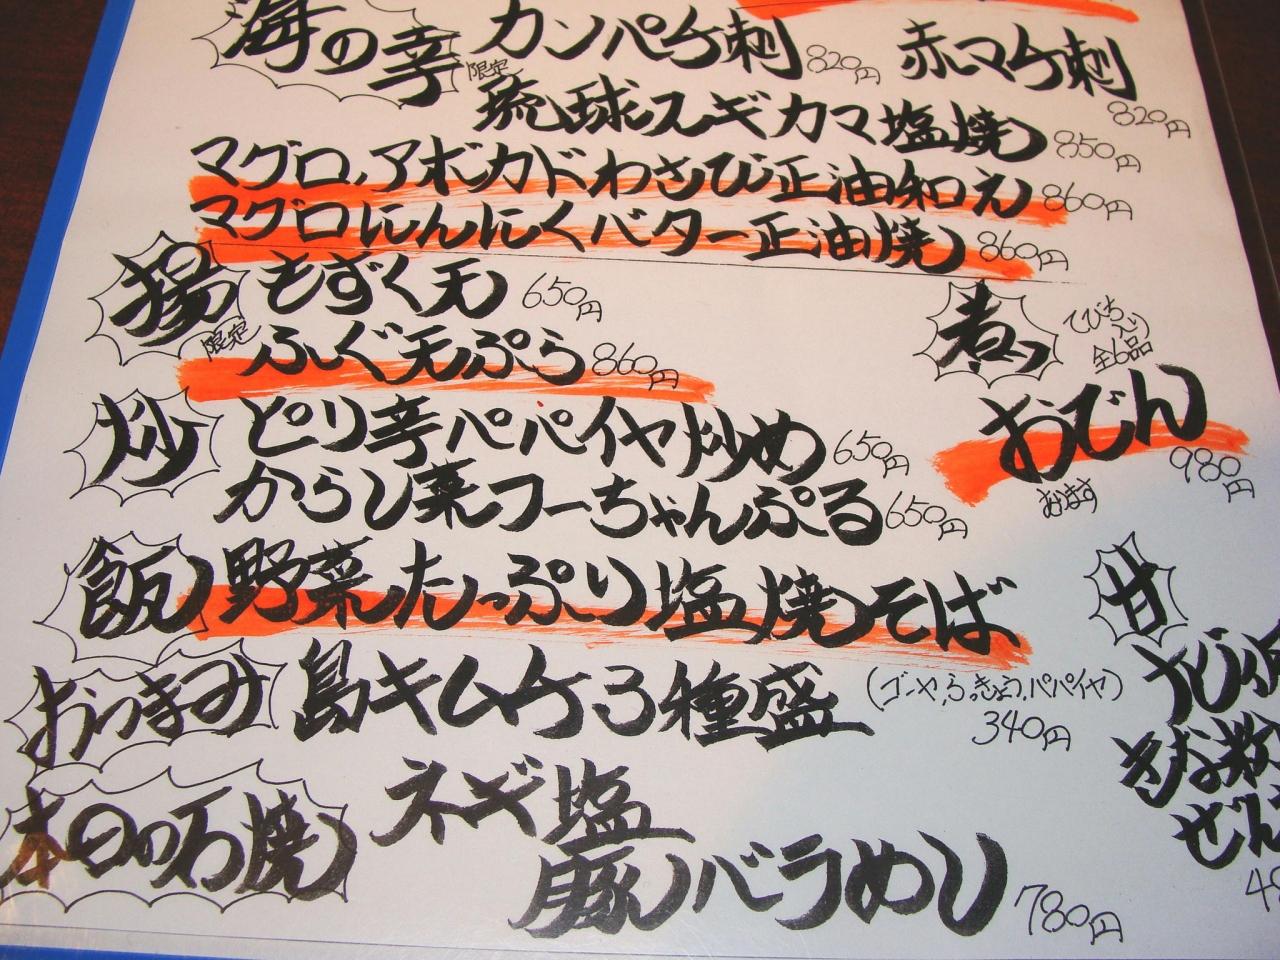 海の幸 カンパチ刺 820円 赤マチ刺 820円
限定 琉球スギカマ塩焼 850円
マグロ、アボカドわさび正油和え 860円
マグロにんにくバター正油焼 860円
揚 もずく天 650円
限定 ふぐ天ぷら 860円
煮 てびち入り 全6品
おでん 980円
あります
炒 ピリ辛パパイヤ炒め 650円
からし菜フーちゃんぷる 650円
飯 野菜たっぷり塩焼そば
おつまみ 島キムチ3種盛 (ゴーヤ、らっきょう、パパイヤ) 340円
本日の石焼 ネギ塩
豚バラめし 780円
甘
きな粉
ぜん